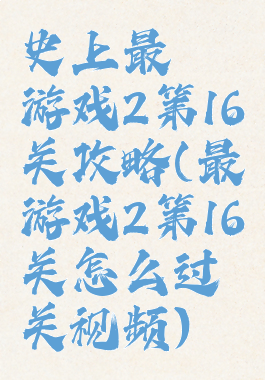 史上最
游戏2第16
关攻略(最
游戏2第16
关怎么过
关视频)